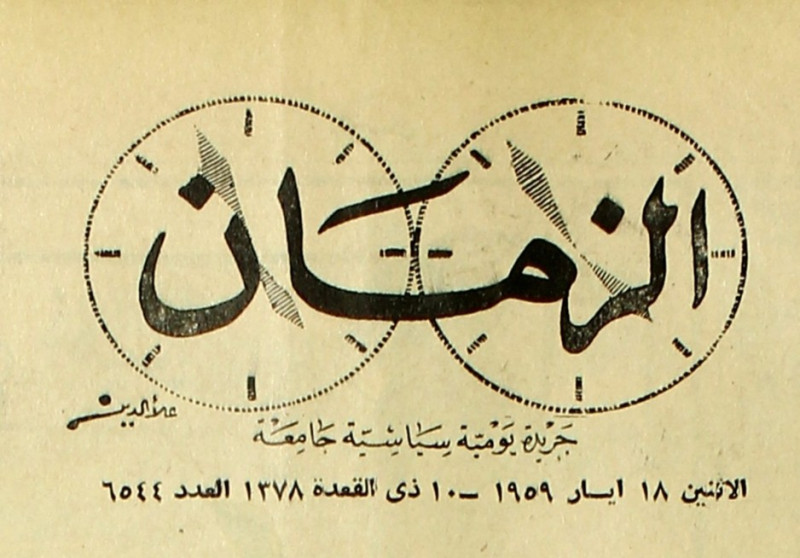 الزمان
علاءالدين
جَريدة يَوميّة سِيَاسِيّة جَامِعَة
الاثنين ١٨ ايسار ١٩٥٩ - ١٠ ذى القعدة ١٣٧٨ العدد ٦٥٤٤